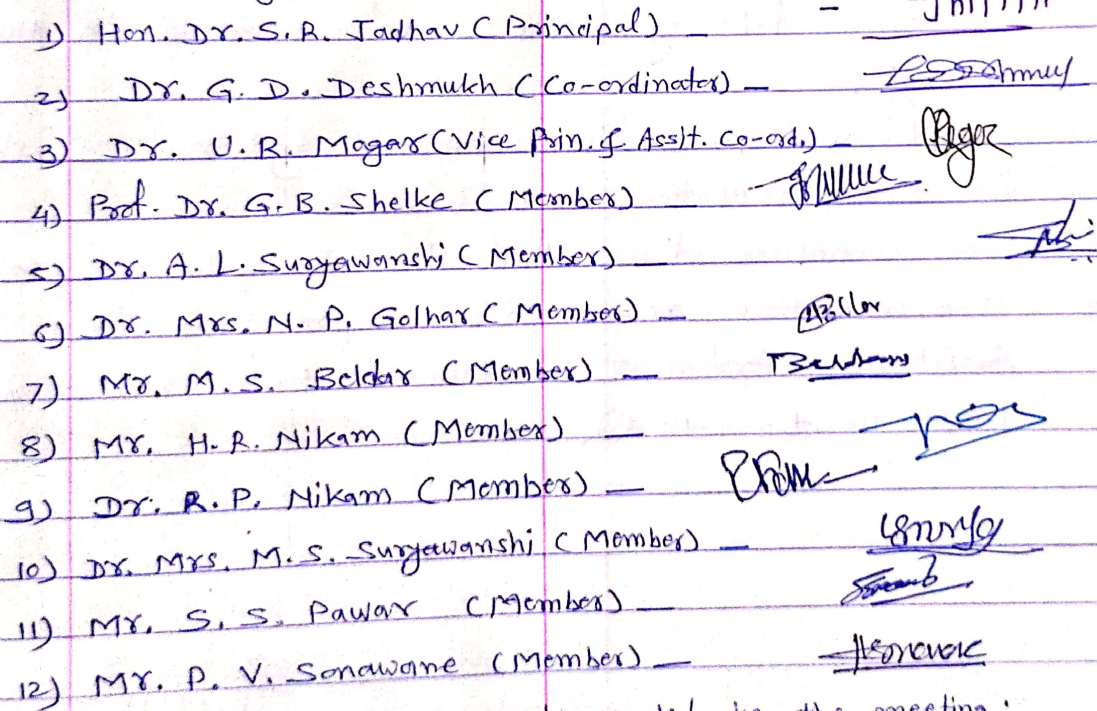 1) Hon. Dr. S. R. Jadhav (Principal) –
2) Dr. G. D. Deshmukh (Co-ordinator) –
3) Dr. U. R. Magar (Vice Prin. & Assit. Co-ord.) –
4) Prof. Dr. G. B. Shelke (Member) –
5) Dr. A. L. Suryawanshi (Member)
6) Dr. Mrs. N. P. Golhar (Member) –
7) Mr. M. S. Beldar (Member) –
8) Mr. H. R. Nikam (Member) –
9) Dr. R. P. Nikam (Member) –
10) Dr. Mrs. M. S. Suryawanshi (Member) –
11) Mr. S. S. Pawar (Member) –
12) Mr. P. V. Sonawane (Member) –
the meeting :